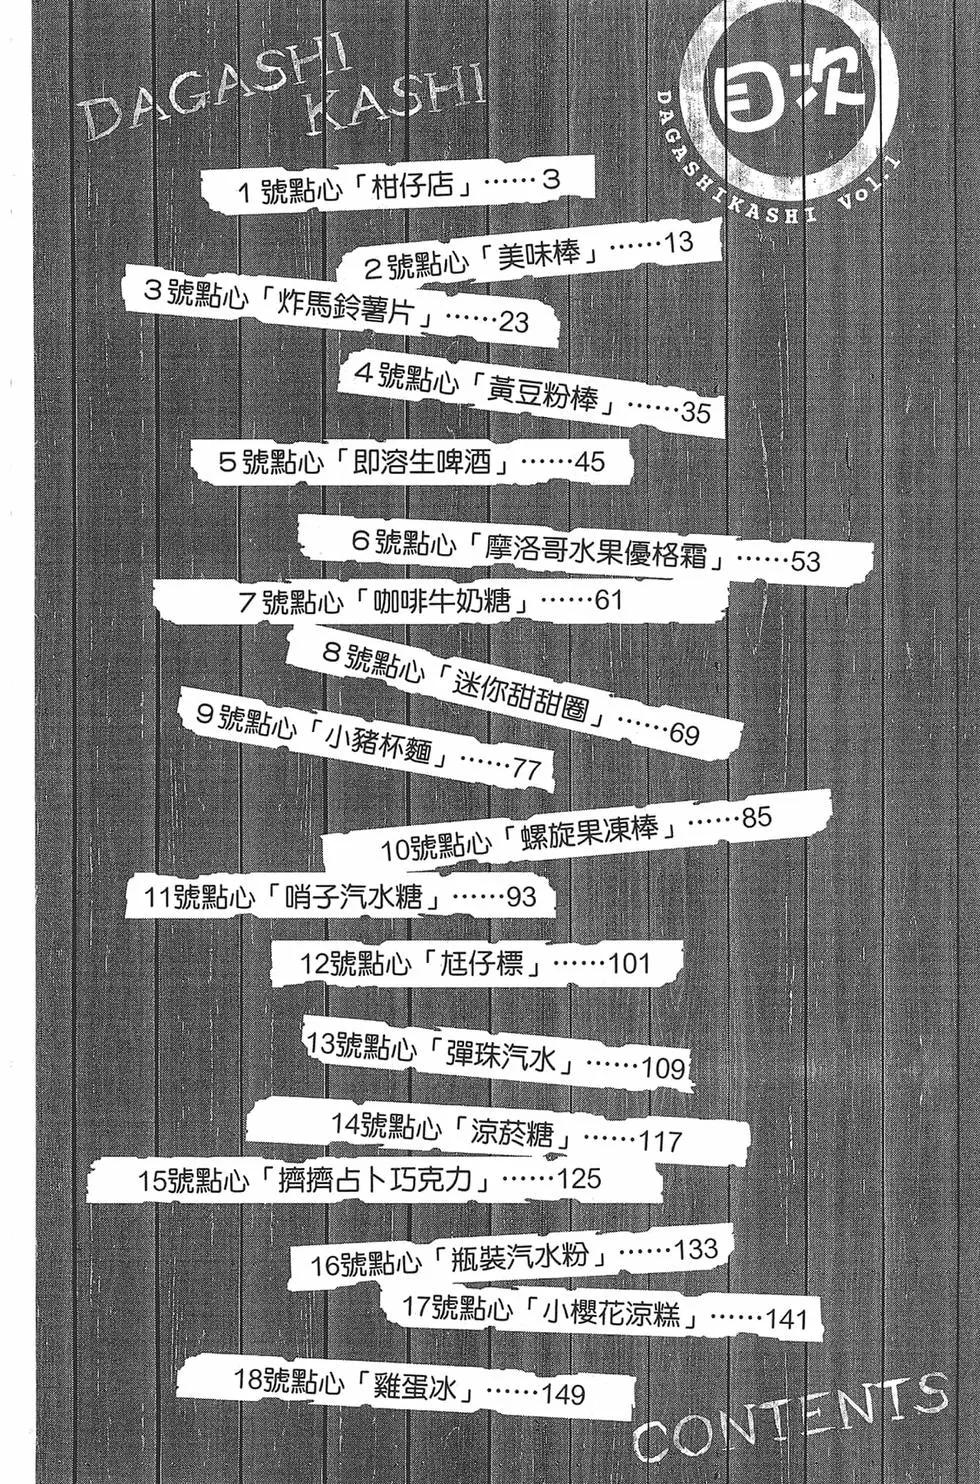 DAGASHI
KASHI
目次
DAGASHIKASHI Vol.1
1號點心「柑仔店」……3
2號點心「美味棒」……13
3號點心「炸馬鈴薯片」……23
4號點心「黃豆粉棒」……35
5號點心「即溶生啤酒」……45
6號點心「摩洛哥水果優格霜」……53
7號點心「咖啡牛奶糖」……61
8號點心「迷你甜甜圈」……69
9號點心「小豬杯麵」……77
10號點心「螺旋果凍棒」……85
11號點心「哨子汽水糖」……93
12號點心「尪仔標」……101
13號點心「彈珠汽水」……109
14號點心「涼菸糖」……117
15號點心「擠擠占卜巧克力」……125
16號點心「瓶裝汽水粉」……133
17號點心「小櫻花涼糕」……141
18號點心「雞蛋冰」……149
CONTENTS